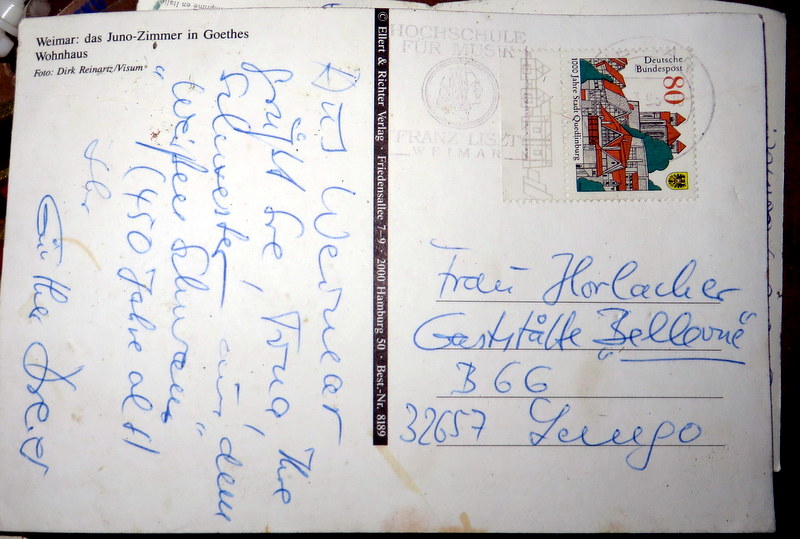 Weimar: das Juno-Zimmer in Goethes
Wohnhaus
Foto: Dirk Reinartz/Visum
Aus Weimar
grüßt Sie, Frau Ihre
Schwester, aus dem
"Weißen Schwan"
(450 Jahre alt!)
Ihr
Günther
© Ellert & Richter Verlag · Friedensallee 7-9 · 2000 Hamburg 50 · Best.-Nr. 8189
HOCHSCHULE
FÜR MUSIK
FRANZ LISZT
WEIMAR
Deutsche
Bundespost
80
1000 Jahre Stadt Quedlinburg
Frau Horlacher
Gaststätte "Bellevue"
B 66
32657 Lemgo